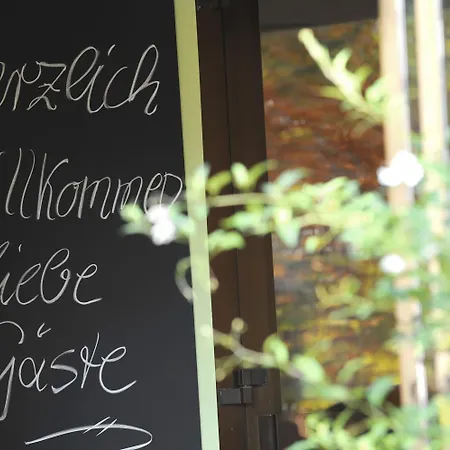 erzlich
illkommen
liebe
Gäste